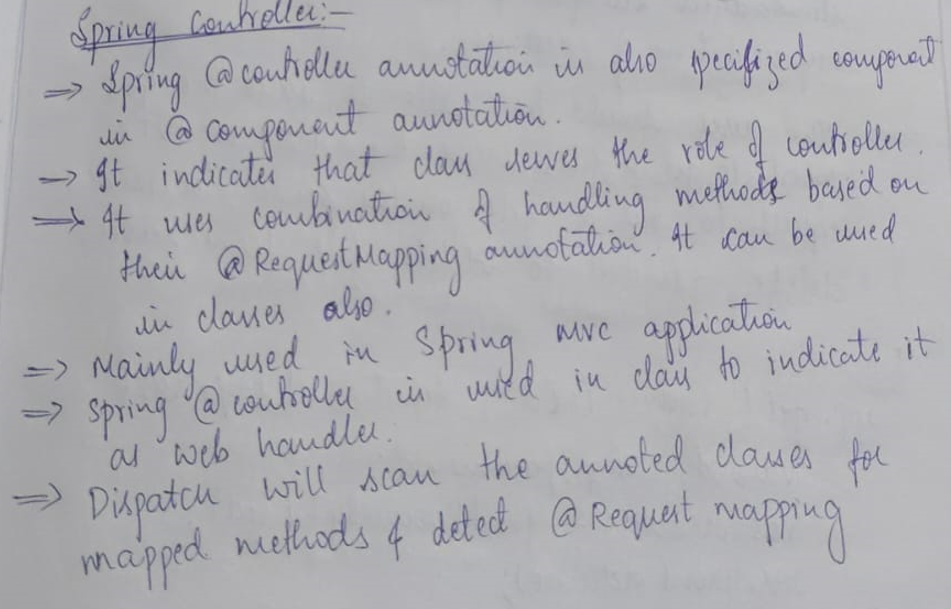 Spring Controller:-
⇒ Spring @controller annotation is also specified component
in @component annotation.
→ It indicates that class serves the role of controller.
⇒ It uses combination of handling methods based on
their @RequestMapping annotation. It can be used
in classes also.
⇒ Mainly used in Spring MVC application
⇒ Spring @controller is used in class to indicate it
as web handler.
⇒ Dispatch will scan the annoted classes for
mapped methods & detect @Request mapping